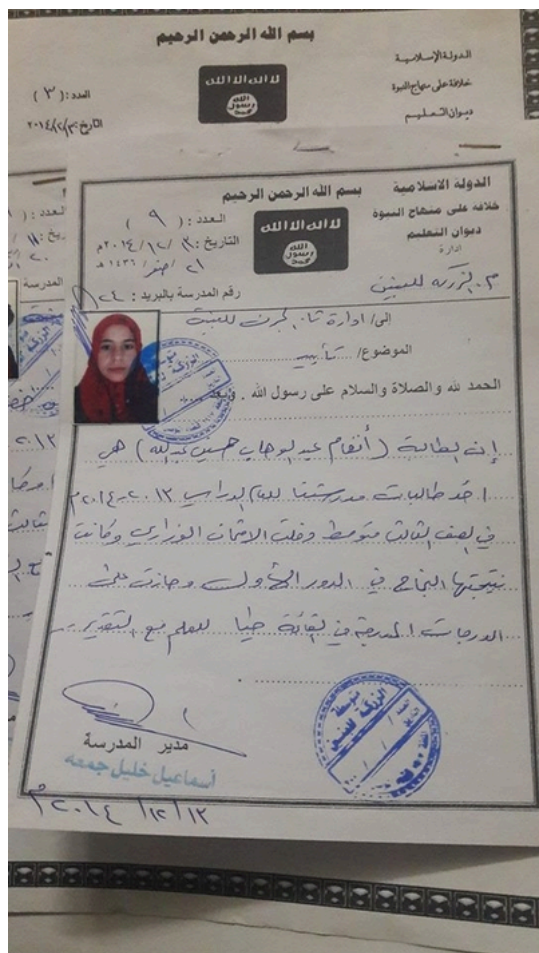 بسم الله الرحمن الرحيم
الدولة الإسلامية
خلافة على منهاج النبوة
ديوان التعليم
العدد : ( ٣ )
لا اله الا الله
الله
رسول
محمد
الدولة الاسلامية
خلافة على منهاج النبوة
ديوان التعليم
ادارة
بسم الله الرحمن الرحيم
لا اله الا الله
الله
رسول
محمد
العدد : ( ٩ )
التاريخ : / ١٢ / ٢٠١٤ م
٢١ / صفر / ١٤٣٦ هـ
رقم المدرسة بالبريد :
م. الزركة للبنين
الى / ادارة للبنات
الموضوع / تأييد
الحمد لله والصلاة والسلام على رسول الله . وبعد
إن الطالبة ( أنغام عبد الوهاب حسين عبدالله ) هي
احد طالبات مدرستنا للعام الدراسي ٢٠١٣ - ٢٠١٤ م
في الصف الثالث متوسط ودخلت الامتحان الوزاري وكانت
نتيجتها النجاح في الدور الأول وحازت على
الدرجات المدرجة في القائمة طيا للعلم مع التقدير
مدير المدرسة
اسماعيل خليل جمعه
١٢ / ١٢ / ٢٠١٤ م
متوسطة
الزركة للبنين